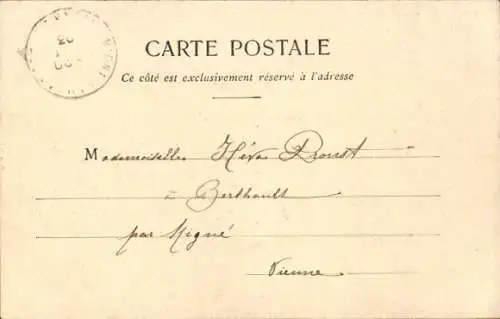 CARTE POSTALE
Ce côté est exclusivement réservé à l'adresse
Mademoiselles Héva Proust
à Berthault
par Migné
Vienne